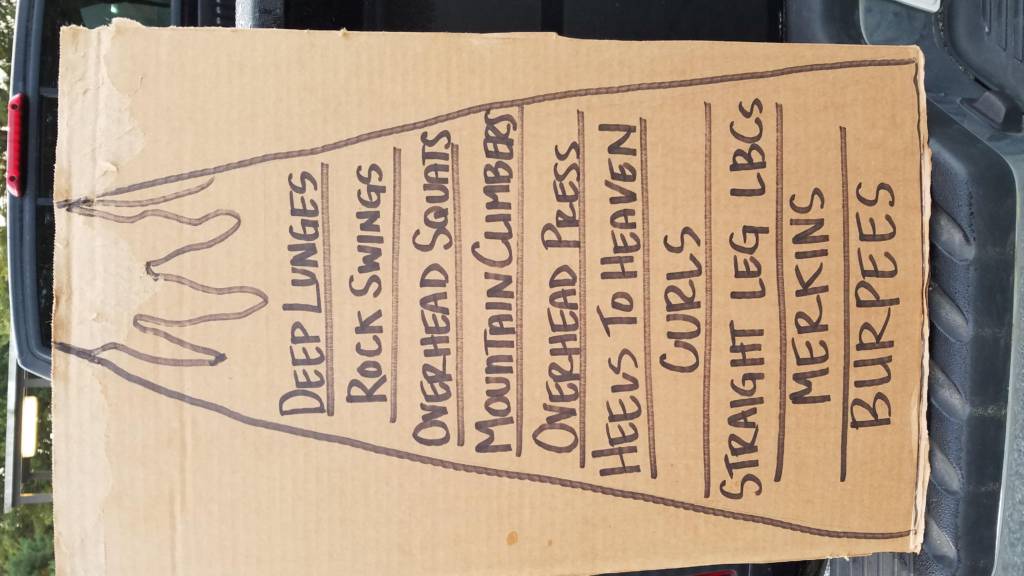 DEEP LUNGES
ROCK SWINGS
OVERHEAD SQUATS
MOUNTAIN CLIMBERS
OVERHEAD PRESS
HEELS TO HEAVEN
CURLS
STRAIGHT LEG LBCs
MERKINS
BURPEES